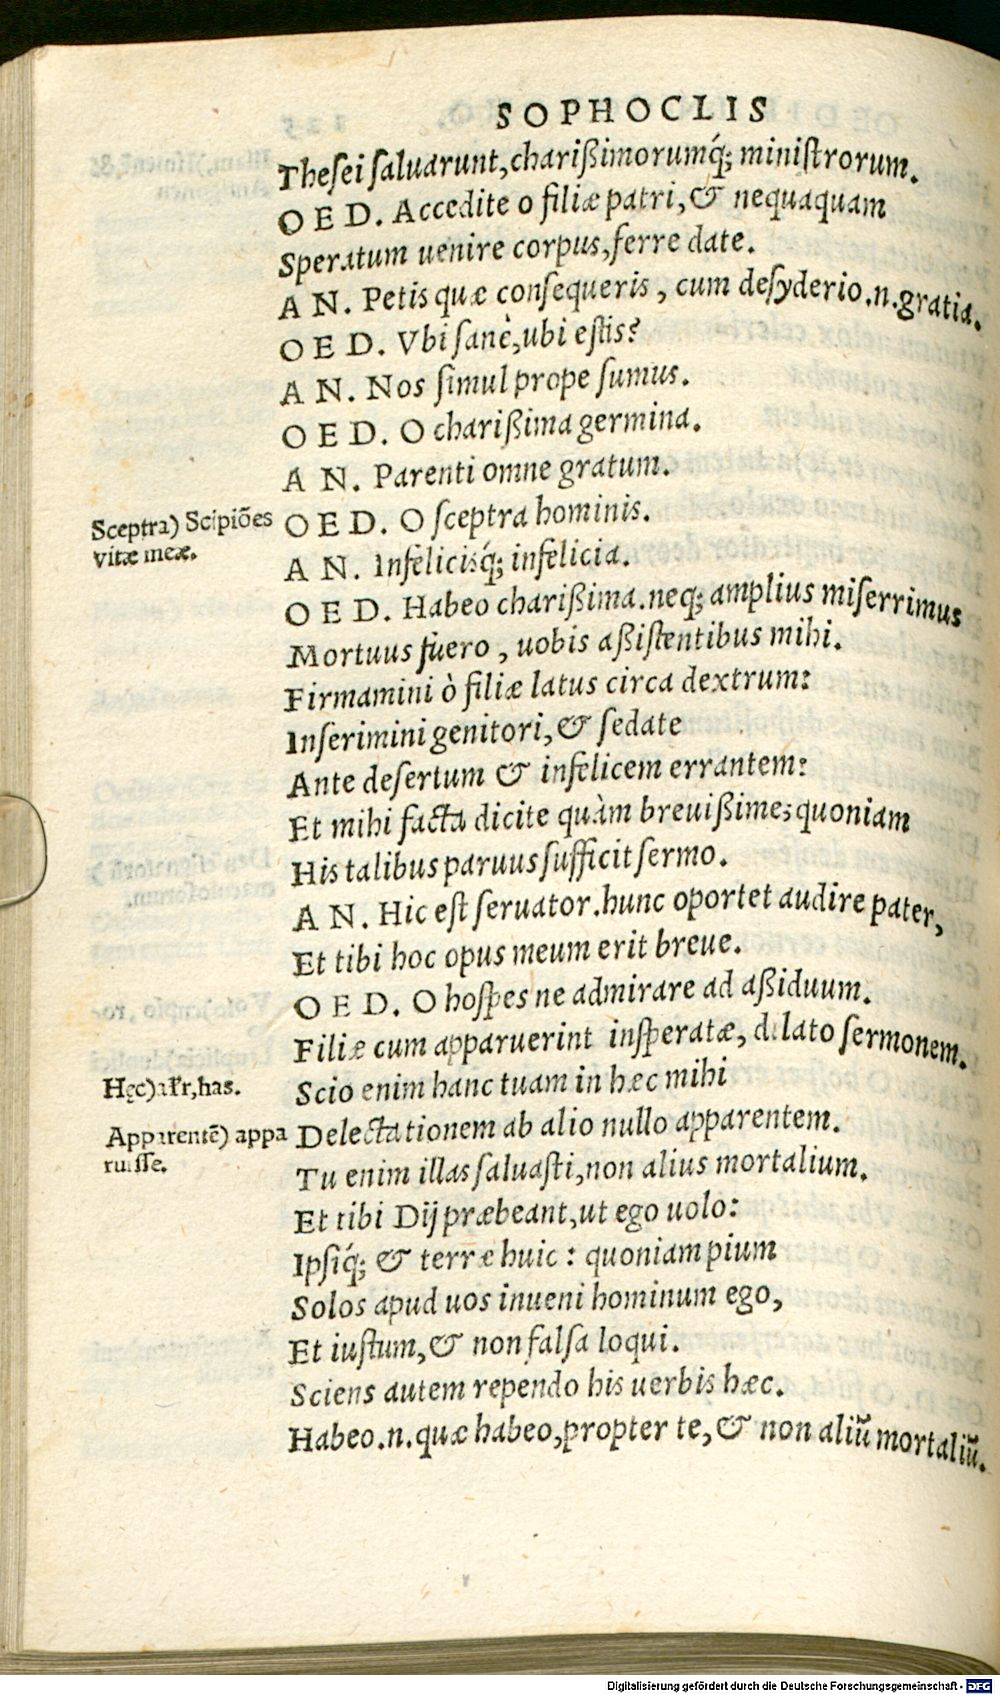 SOPHOCLIS
Thesei saluarunt, charißimorumq́; ministrorum.
OED. Accedite o filiæ patri, & nequaquam
Speratum uenire corpus, ferre date.
AN. Petis quæ consequeris, cum desyderio.n.gratia.
OED. Vbi sanè, ubi estis?
AN. Nos simul prope sumus.
OED. O charißima germina.
AN. Parenti omne gratum.
OED. O sceptra hominis.
Sceptra) Scipiões
vitæ meæ.
AN. Infelicisq́; infelicia.
OED. Habeo charißima.neq; amplius miserrimus
Mortuus fuero, uobis aßistentibus mihi.
Firmamini ò filiæ latus circa dextrum:
Inserimini genitori, & sedate
Ante desertum & infelicem errantem:
Et mihi facta dicite quàm breuißime; quoniam
His talibus paruus sufficit sermo.
AN. Hic est seruator.hunc oportet audire pater,
Et tibi hoc opus meum erit breue.
OED. O hospes ne admirare ad aßiduum.
Filiæ cum apparuerint insperatæ, dilato sermonem.
Scio enim hanc tuam in hæc mihi
Hęc) has.
Delectationem ab alio nullo apparentem.
Apparentē) appa
ruisse.
Tu enim illas saluasti, non alius mortalium.
Et tibi Dij præbeant, ut ego uolo:
Ipsiq́; & terræ huic : quoniam pium
Solos apud uos inueni hominum ego,
Et iustum, & non falsa loqui.
Sciens autem rependo his uerbis hæc.
Habeo.n.quæ habeo, propter te, & non aliū mortaliū.
Digitalisierung gefördert durch die Deutsche Forschungsgemeinschaft - DFG